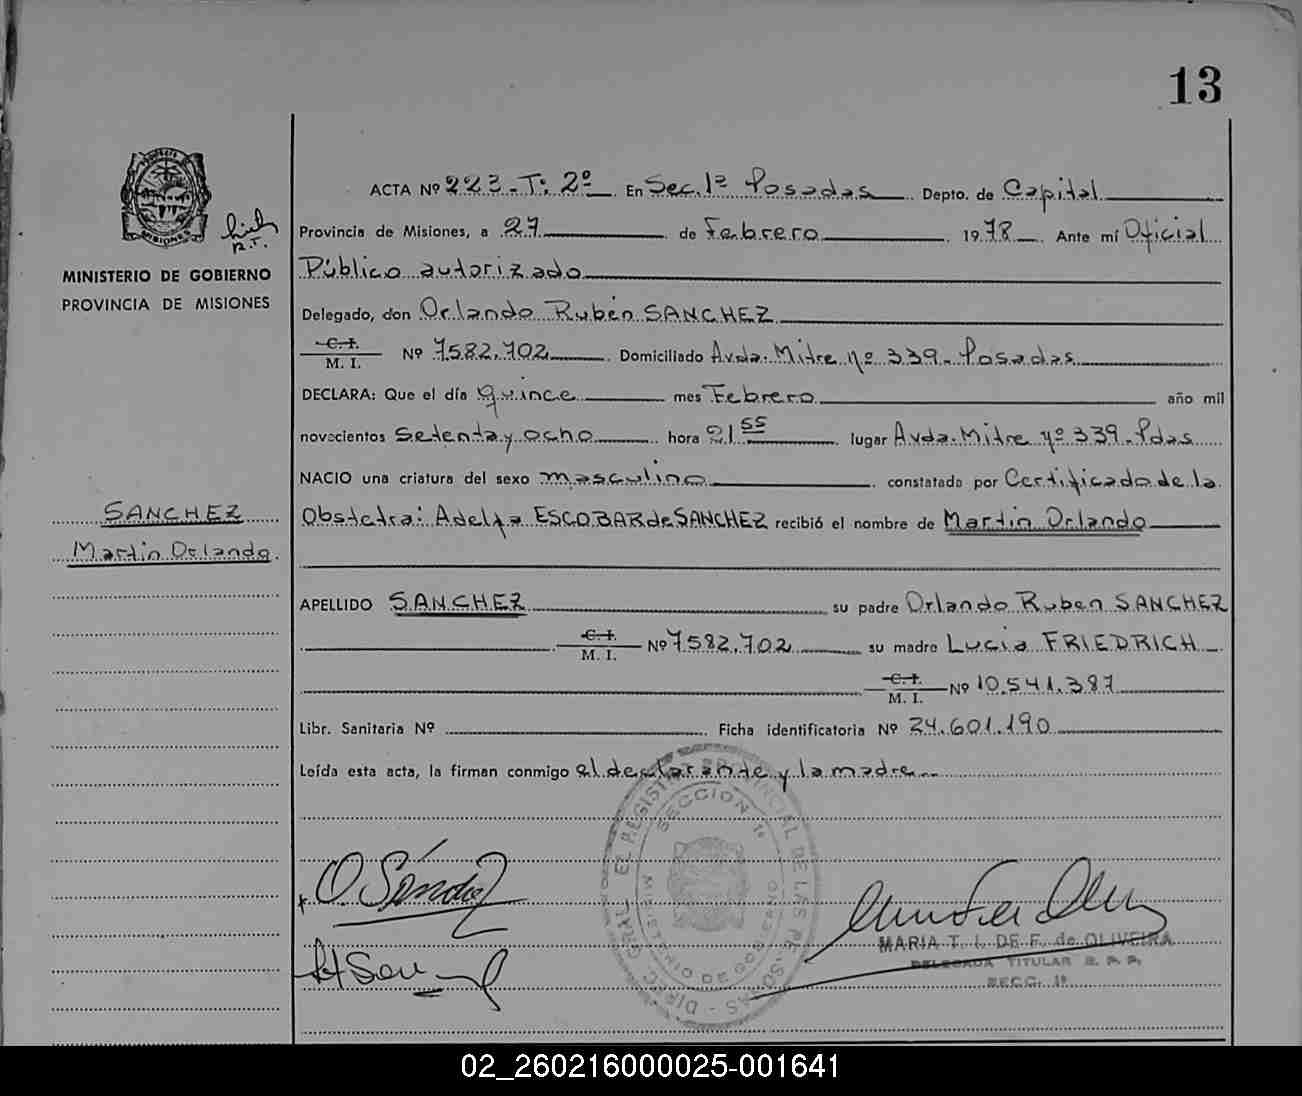 13
ACTA Nº 223 - T: 2º En Sec. 1ª Posadas Depto. de Capital
Provincia de Misiones, a 27 de Febrero 1978 Ante mí Oficial
Público autorizado
Delegado, don Orlando Rubén SANCHEZ
C. I. M. I. Nº 7582.702 Domiciliado Avda. Mitre nº 339 - Posadas
DECLARA: Que el día quince mes Febrero año mil
novecientos setenta y ocho hora 21 55 lugar Avda. Mitre nº 339 - Pdas
NACIO una criatura del sexo masculino constatado por Certificado de la
Obstetra: Adelfa ESCOBAR de SANCHEZ recibió el nombre de Martín Orlando
APELLIDO SANCHEZ su padre Orlando Ruben SANCHEZ
C. I. M. I. Nº 7582.702 su madre Lucia FRIEDRICH
C. I. M. I. Nº 10.541.387
Libr. Sanitaria Nº Ficha identificatoria Nº 24.601.190
Leída esta acta, la firman conmigo el declarante y la madre
MISIONES
R.T.
MINISTERIO DE GOBIERNO
PROVINCIA DE MISIONES
SANCHEZ
Martín Orlando.
O. Sánchez
SECCION 1ª
MARIA T. I. DE F. de OLIVEIRA
DELEGADA TITULAR R. P. P.
SECC. 1ª
02_260216000025-001641